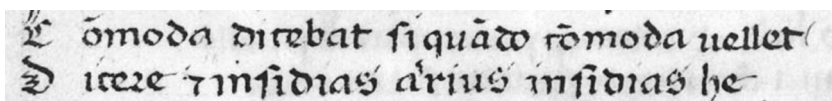 C õmoda dicebat si quãdo cõmoda uellet
D icere ⁊ insidias arrius insidias he